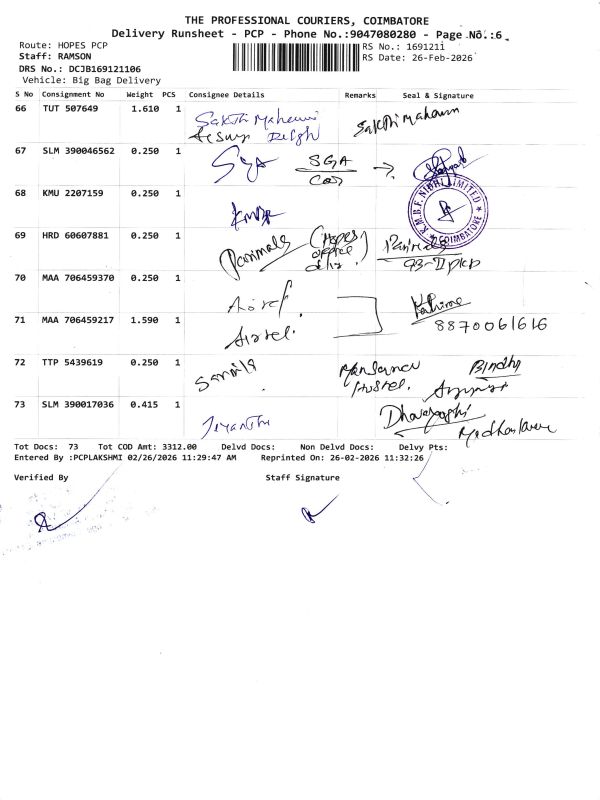 THE PROFESSIONAL COURIERS, COIMBATORE
Delivery Runsheet - PCP - Phone No.:9047080280 - Page No.:6
Route: HOPES PCP
RS No.: 1691211
Staff: RAMSON
RS Date: 26-Feb-2026
DRS No.: DCJB169121106
Vehicle: Big Bag Delivery
S No Consignment No Weight PCS Consignee Details Remarks Seal & Signature
66 TUT 507649 1.610 1
Sakthi
Sakthi
67 SLM 390046562 0.250 1
SGA
68 KMU 2207159 0.250 1
NIDHI LIMITED
COIMBATORE
69 HRD 60607881 0.250 1
Panimala (Hopes
office
70 MAA 706459370 0.250 1
71 MAA 706459217 1.590 1
Airtel.
8870061616
72 TTP 5439619 0.250 1
Hostel.
Bindhu
73 SLM 390017036 0.415 1
Jeyanthi
Tot Docs: 73 Tot COD Amt: 3312.00 Delvd Docs: Non Delvd Docs: Delvy Pts:
Entered By :PCPLAKSHMI 02/26/2026 11:29:47 AM Reprinted On: 26-02-2026 11:32:26
Verified By Staff Signature